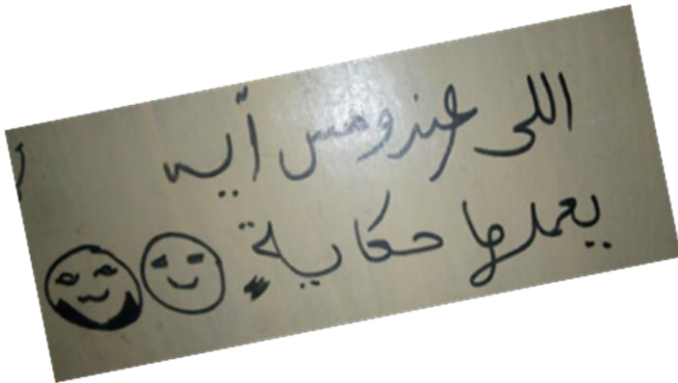 اللى عندومس أيه
يعملها حكاية